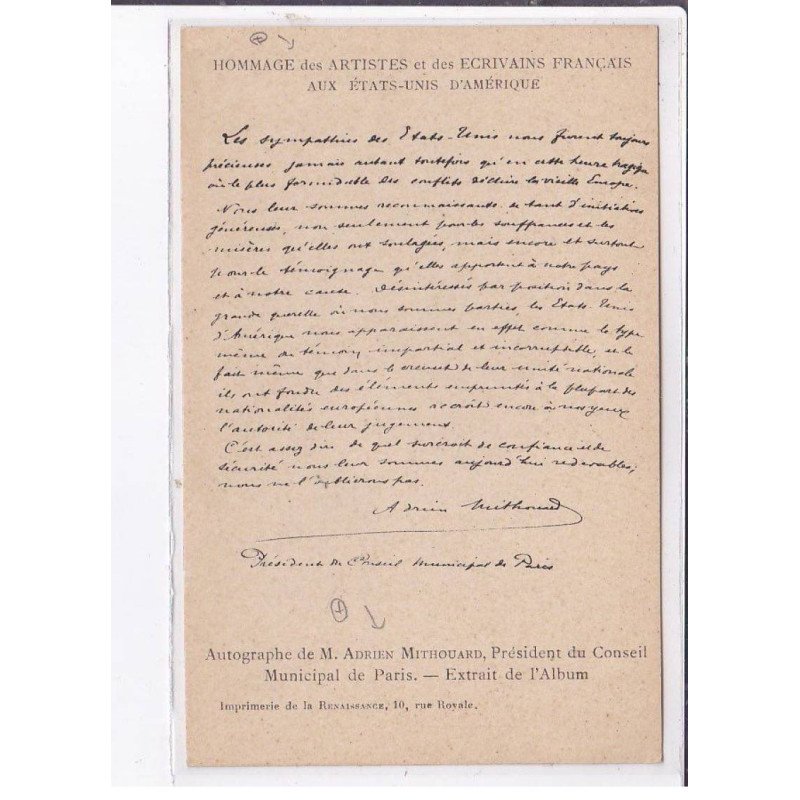 HOMMAGE des ARTISTES et des ECRIVAINS FRANÇAIS
AUX ÉTATS-UNIS D'AMÉRIQUE
Les sympathies des Etats-Unis nous furent toujours
précieuses jamais autant toutefois qu'en cette heure tragique
où le plus formidable des conflits déchire la vieille Europe.
Nous leur sommes reconnaissants de tant d'initiatives
généreuses, non seulement pour les souffrances et les
misères qu'elles ont soulagées, mais encore et surtout
pour le témoignage qu'elles apportent à notre pays
et à notre cause. Désintéressés par position dans la
grande querelle où nous sommes parties, les Etats Unis
d'Amérique nous apparaissent en effet comme le type
même du témoin impartial et incorruptible, et le
fait même que dans le creuset de leur unité nationale
ils ont fondu des éléments empruntés à la plupart des
nationalités européennes recroît encore à nos yeux
l'autorité de leur jugement.
C'est assez dire de quel surcroit de confiance et de
sécurité nous leur sommes aujourd'hui redevables;
nous ne l'oublierons pas.
Adrien Mithouard
Président du Conseil Municipal de Paris
Autographe de M. ADRIEN MITHOUARD, Président du Conseil
Municipal de Paris. — Extrait de l'Album
Imprimerie de la RENAISSANCE, 10, rue Royale.